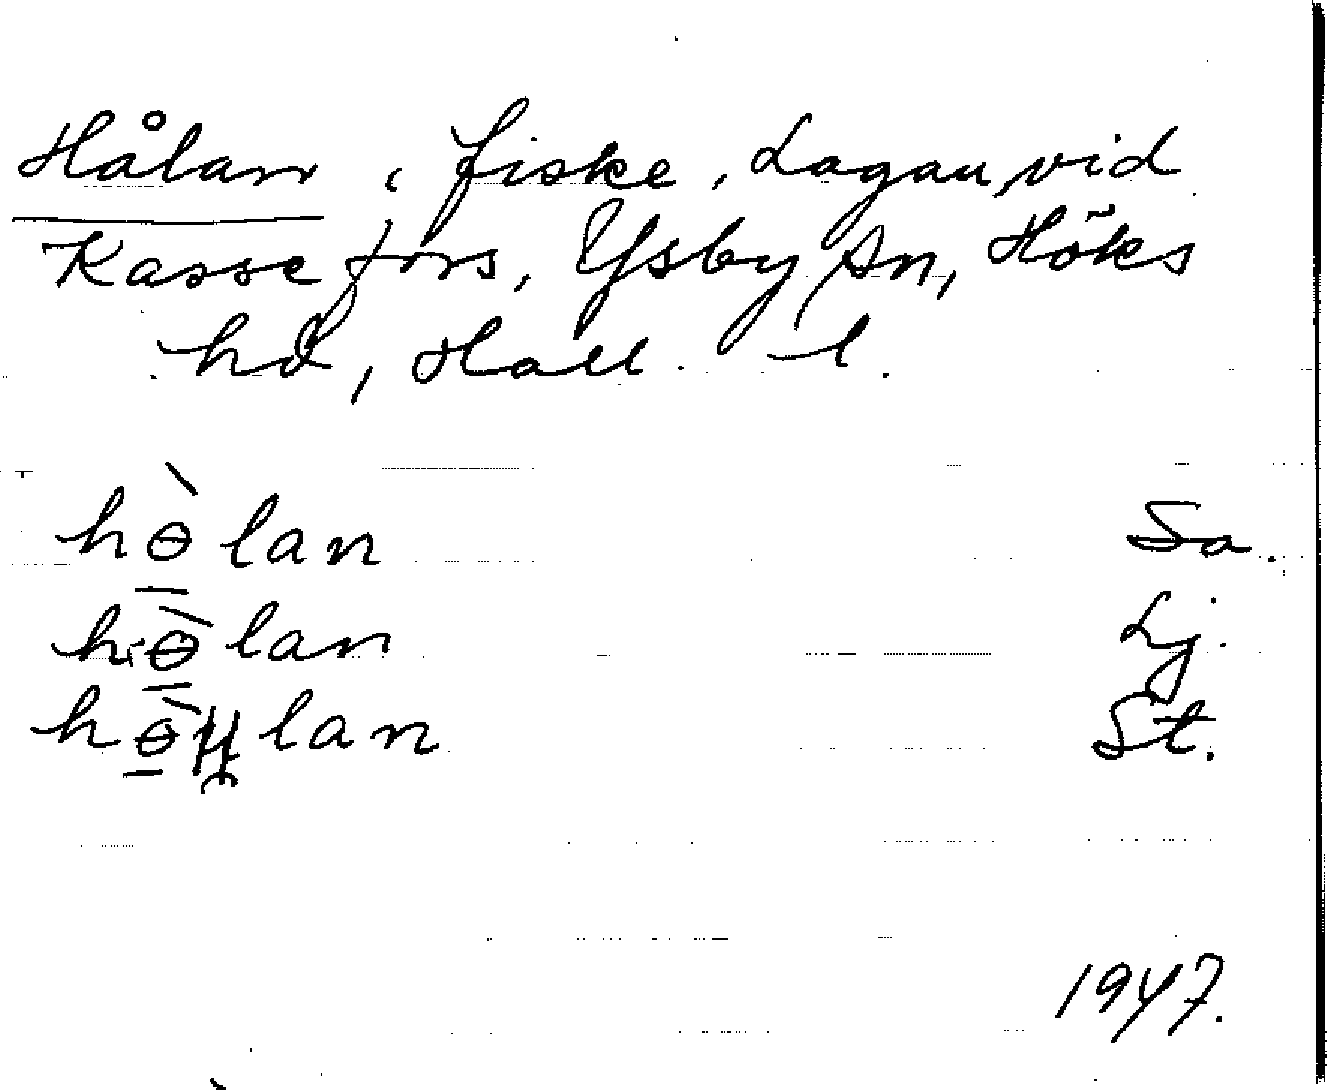 Hålan, fiske, Lagan, vid
Kassefors, Ysby sn, Höks
hd, Hall. l.
hɵ̀lan Sa.
hɵ̀lan Lj.
lan St.
1947.